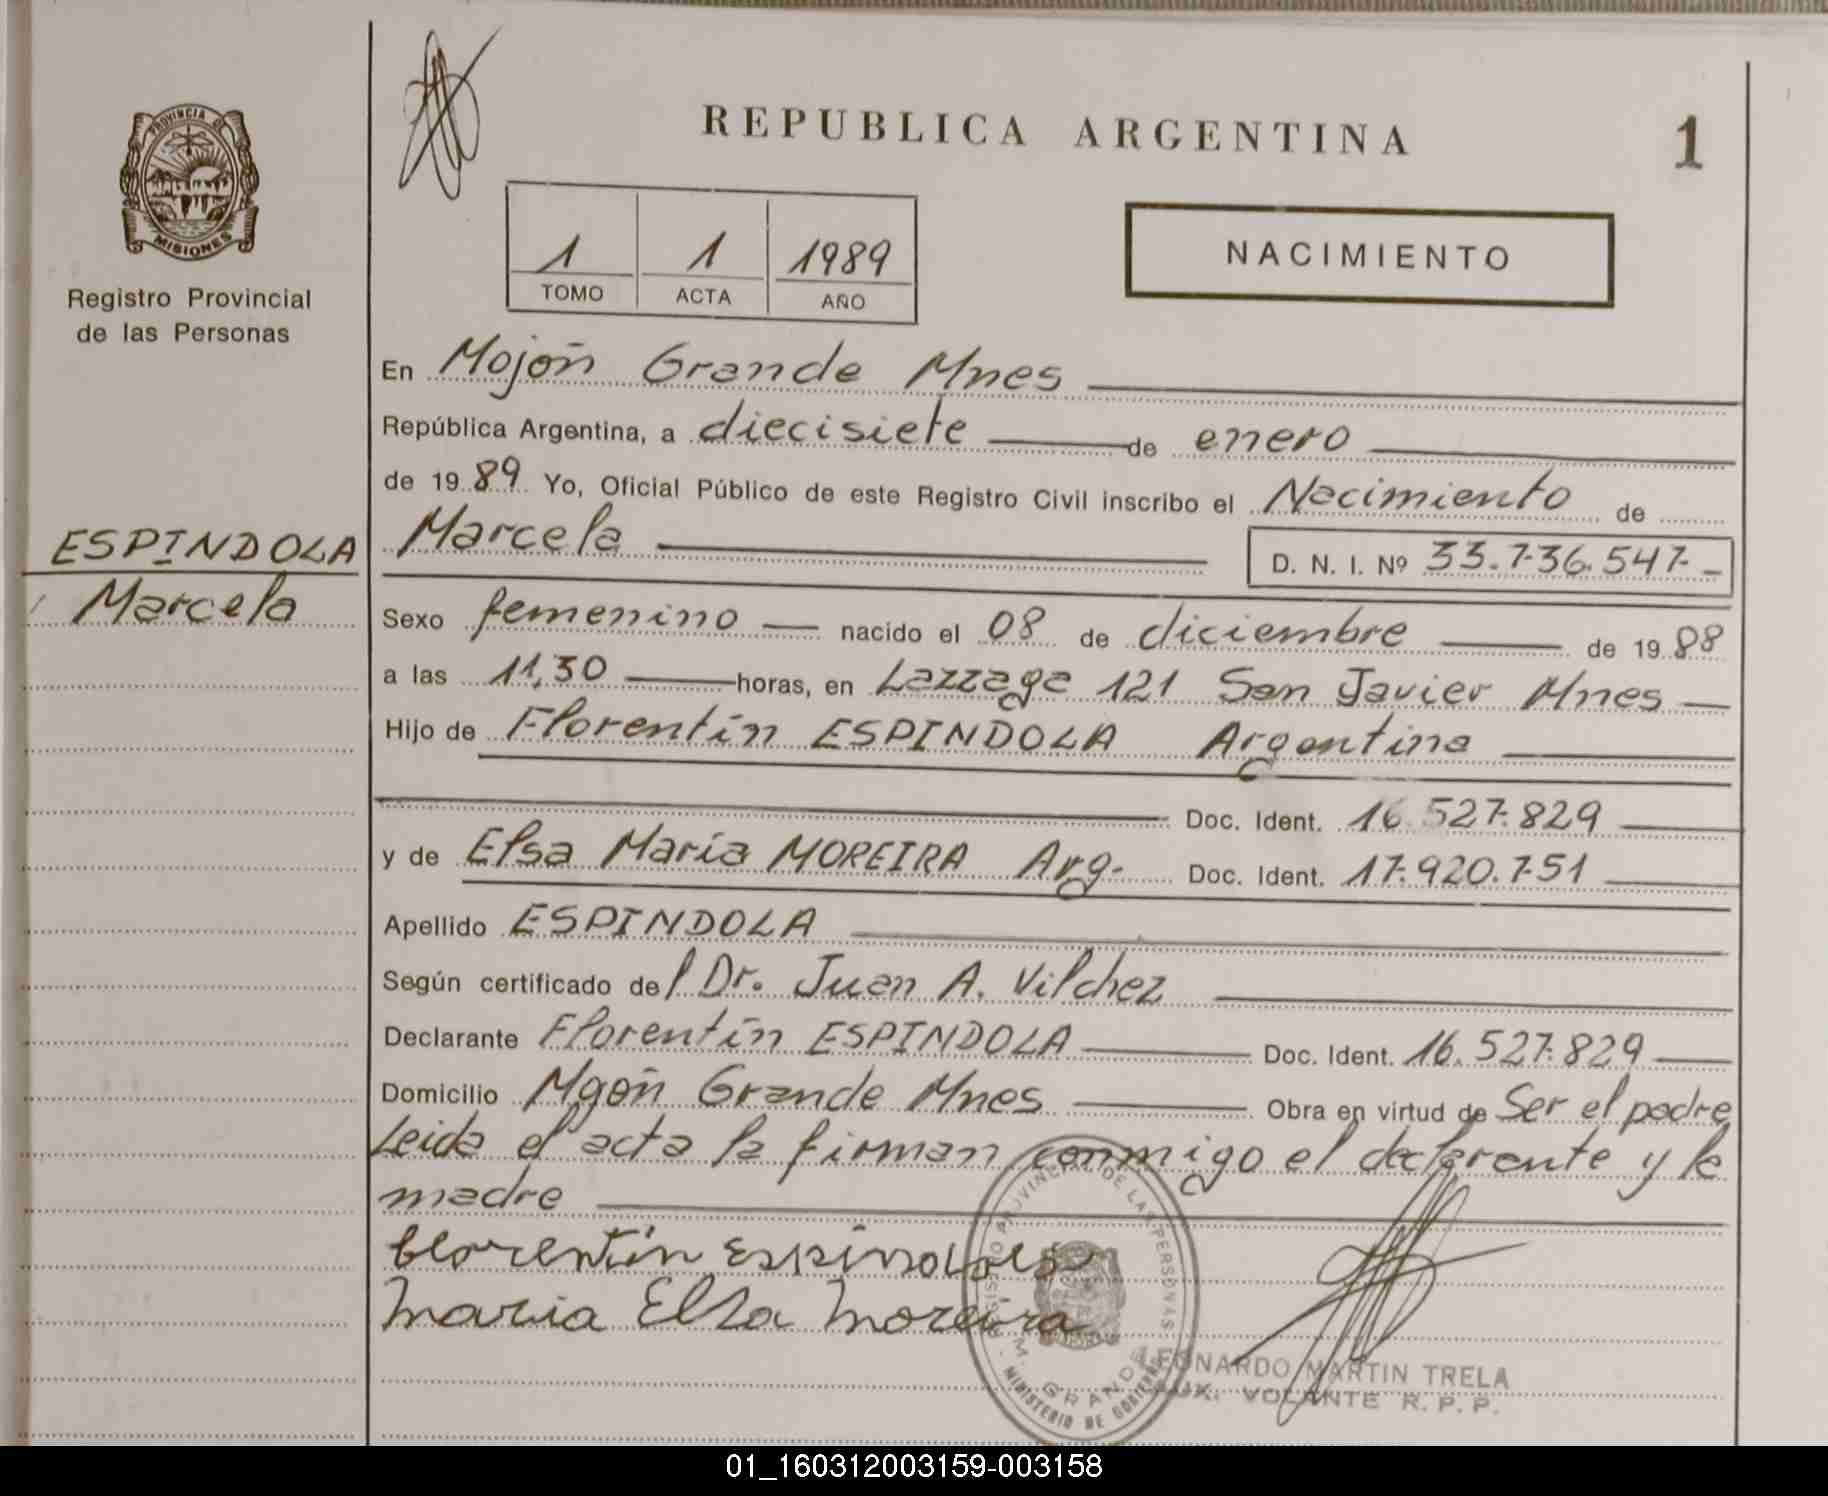 PROVINCIA DE
MISIONES
Registro Provincial
de las Personas
REPUBLICA ARGENTINA
1
1 1 1989
TOMO ACTA AÑO
NACIMIENTO
En Mojón Grande Mnes
República Argentina, a diecisiete de enero
de 1989 Yo, Oficial Público de este Registro Civil inscribo el Nacimiento de
ESPINDOLA
Marcela
Marcela D. N. I. Nº 33.736.547-
Sexo femenino nacido el 08 de diciembre de 1988
a las 11,30 horas, en Lazzaga 121 San Javier Mnes
Hijo de Florentín ESPINDOLA Argentina
Doc. Ident. 16.527.829
y de Elsa María MOREIRA Arg. Doc. Ident. 17.920.751
Apellido ESPINDOLA
Según certificado del Dr. Juan A. Vilchez
Declarante Florentín ESPINDOLA Doc. Ident. 16.527.829
Domicilio Mojón Grande Mnes Obra en virtud de Ser el padre
Leida el acta la firman conmigo el declarente y la
madre
florentín Espíndola
maria Elsa moreira
REGISTRO PROVINCIAL DE LAS PERSONAS
M. GRANDE
MINISTERIO DE GOBIERNO
LEONARDO MARTIN TRELA
AUX. VOLANTE R.P.P.
01_160312003159-003158